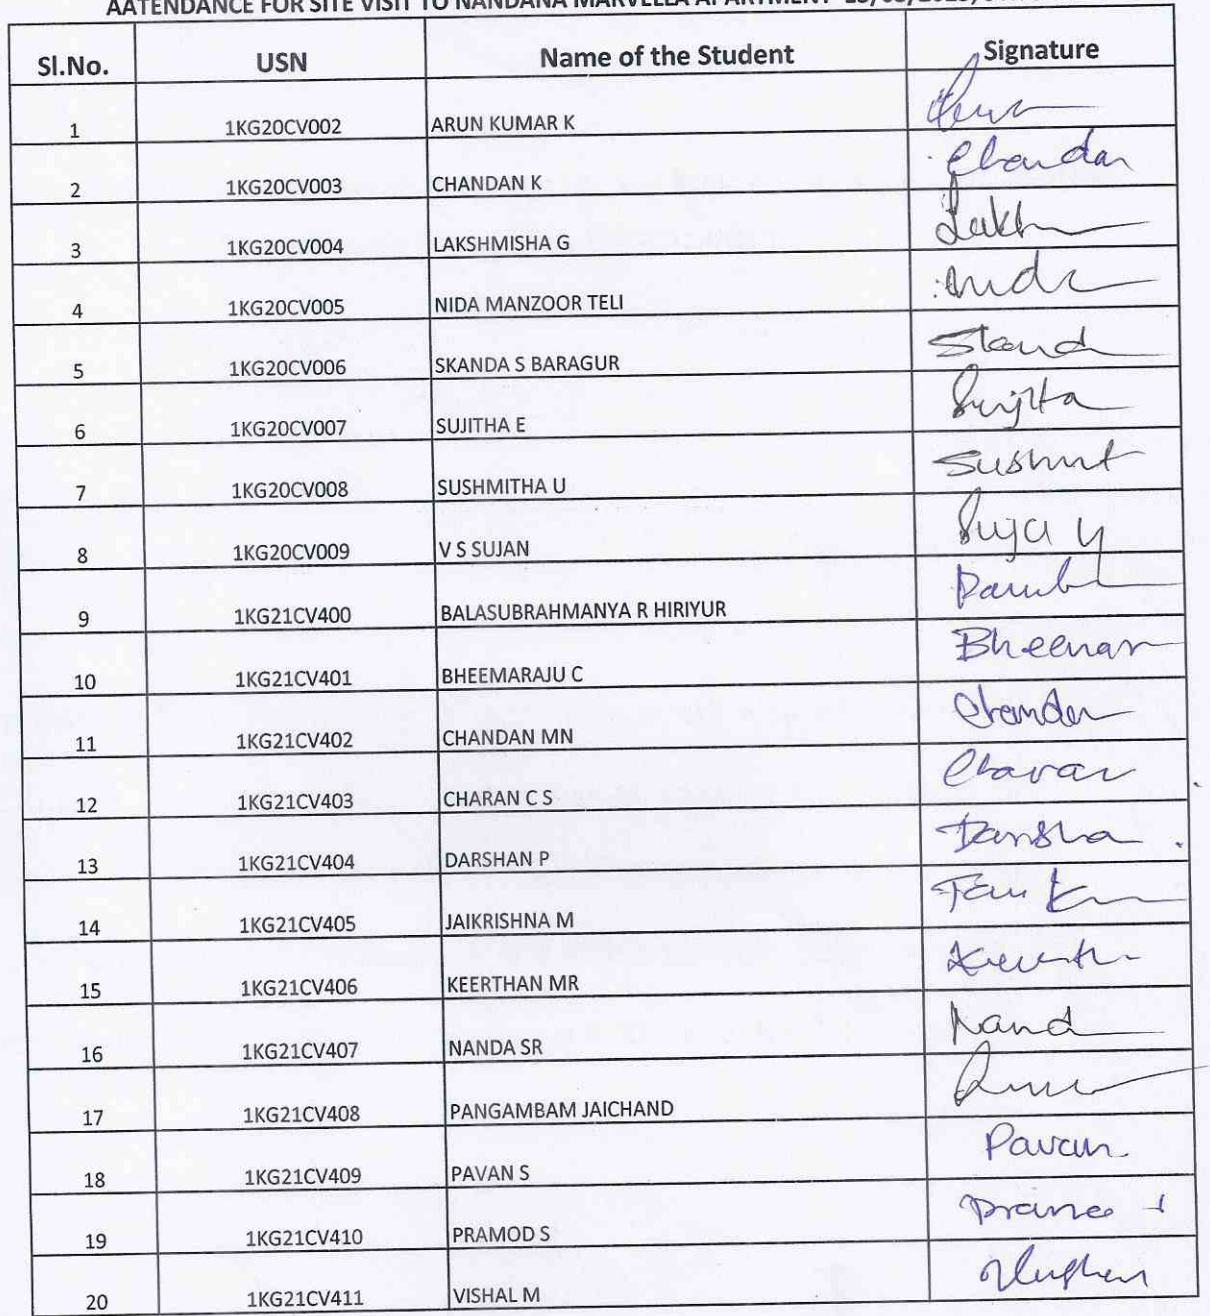 AATENDANCE FOR SITE VISIT TO NANDANA MARVELLA APARTMENT
Sl.No. USN Name of the Student Signature
1 1KG20CV002 ARUN KUMAR K
2 1KG20CV003 CHANDAN K Chandan
3 1KG20CV004 LAKSHMISHA G Lakh
4 1KG20CV005 NIDA MANZOOR TELI
5 1KG20CV006 SKANDA S BARAGUR Skand
6 1KG20CV007 SUJITHA E Sujita
7 1KG20CV008 SUSHMITHA U Sushmt
8 1KG20CV009 V S SUJAN
9 1KG21CV400 BALASUBRAHMANYA R HIRIYUR
10 1KG21CV401 BHEEMARAJU C
11 1KG21CV402 CHANDAN MN Chandan
12 1KG21CV403 CHARAN C S Charan
13 1KG21CV404 DARSHAN P Darsha
14 1KG21CV405 JAIKRISHNA M
15 1KG21CV406 KEERTHAN MR
16 1KG21CV407 NANDA SR Nand
17 1KG21CV408 PANGAMBAM JAICHAND
18 1KG21CV409 PAVAN S Pavan
19 1KG21CV410 PRAMOD S
20 1KG21CV411 VISHAL M